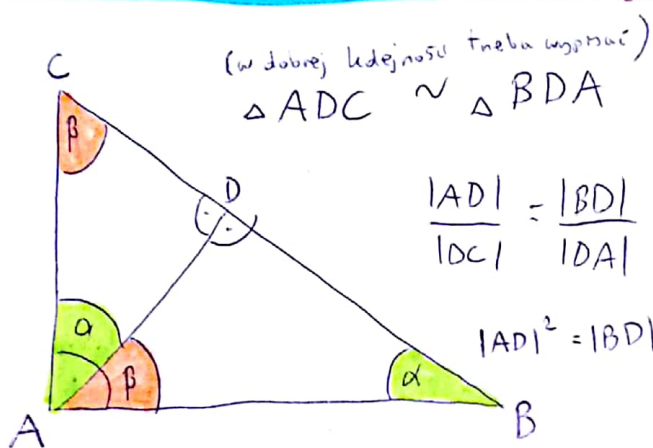 (w dobrej kolejności trzeba wypisać)
△ ADC ~ △ BDA
|AD| / |DC| = |BD| / |DA|
|AD|² = |BD|
C
β
D
α
β
α
A
B